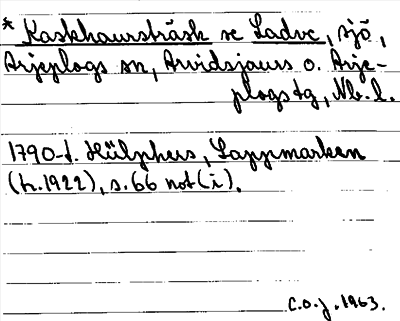 * Kaskhaursträsk se Ladvc, sjö,
Arjeplogs sn, Arvidsjaurs o. Arje-
plogs tg, Nb. l.
1790-t. Hülphers, Lappmarken
(tr. 1922), s. 66 not (i).
C.O.J. 1963.